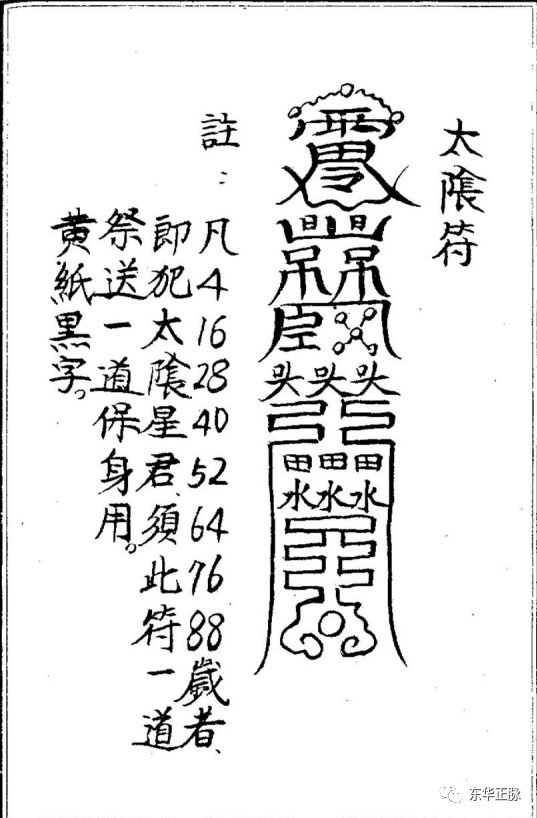 太陰符
吊吊
臣
头头头
田田田
水水水
註：凡4 16 28 40 52 64 76 88歲者、
即犯太陰星君、須此符一道
祭送一道保身用。
黄紙黑字。
东华正脉